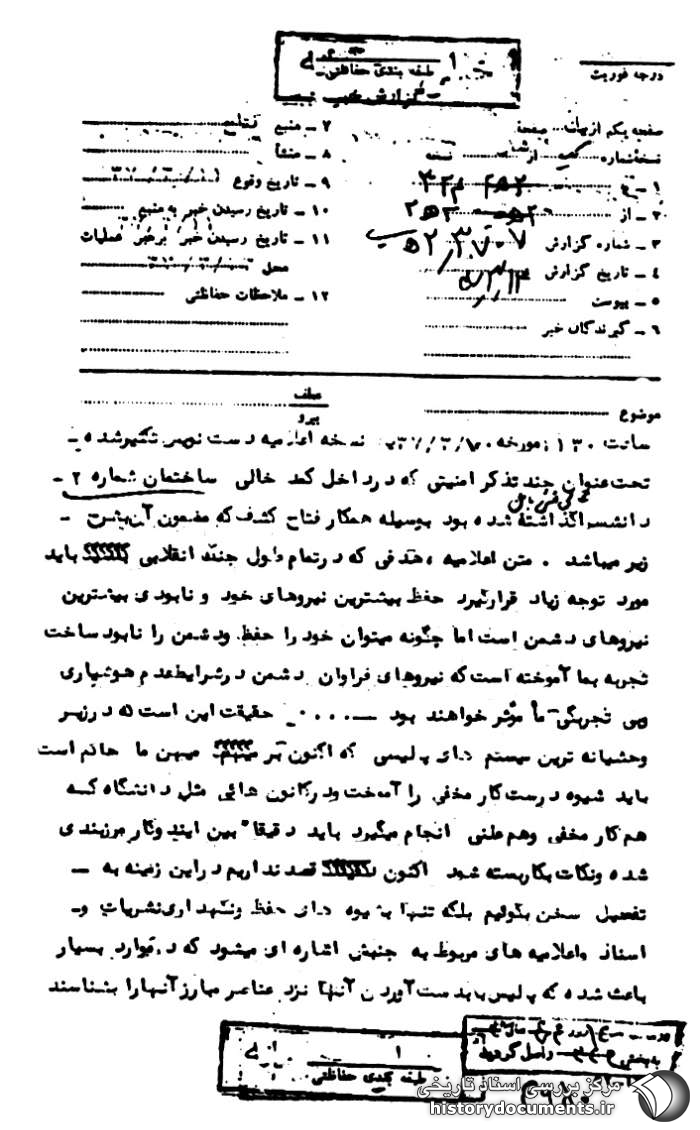 طبقه بندی حفاظتی
گزارش خبر
درجه فوریت
صفحه یکم از صفحه
نسخه شماره از نسخه
۱ ـ به
۲ ـ از
۳ ـ شماره گزارش
۴ ـ تاریخ گزارش
۵ ـ پیوست
۶ ـ گیرندگان خبر
۷ ـ منبع
۸ ـ منشأ
۹ ـ تاریخ وقوع
۱۰ ـ تاریخ رسیدن خبر به منبع
۱۱ ـ تاریخ رسیدن خبر به رهبر عملیات
محل
۱۲ ـ ملاحظات حفاظتی
موضوع
عطف
پیرو
ساعت مورخه نسخه اعلامیه دست نویس تکثیرشده ـ
تحت عنوان چند تذکر امنیتی که درداخل کمد خالی ساختمان شماره ۲ ـ
گذاشته شده بود بوسیله همکار فتاح کشف که مضمون آن بشرح ـ
زیر میباشد . متن اعلامیه ، هدفی که درتمام طول جنگ انقلابی باید
مورد توجه زیاد قرارگیرد حفظ بیشترین نیروهای خود و نابودی بیشترین
نیروهای دشمن است اما چگونه میتوان خود را حفظ ودشمن را نابود ساخت
تجربه بما آموخته است که نیروهای فراوان دشمن درشرایط عدم هوشیاری
وبی تجربگی ما مؤثر خواهند بود ـ .... حقیقت این است که درزیر
وحشیانه ترین سیستم های پلیسی که اکنون بر میهن ما حاکم است
باید شیوه درست کار مخفی را آموخت ودرکانون هائی مثل دانشگاه که
هم کار مخفی وهم علنی انجام میگیرد باید دقیقا" بین ایندوکار مرزبندی
شده ونکات بکاربسته شود اکنون قصد نداریم دراین زمینه به ـ
تفصیل سخن بگوئیم بلکه تنها بشیوه های حفظ ونگهداری نشریات و ـ
اسناد واعلامیه های مربوط به جنبش اشاره ای میشود که درموارد بسیار
باعث شده که پلیس بابدست آوردن آنها نزد عناصر مبارز آنهارا بشناسند
۱
طبقه بندی حفاظتی
مرکز بررسی اسناد تاریخی
historydocuments.ir